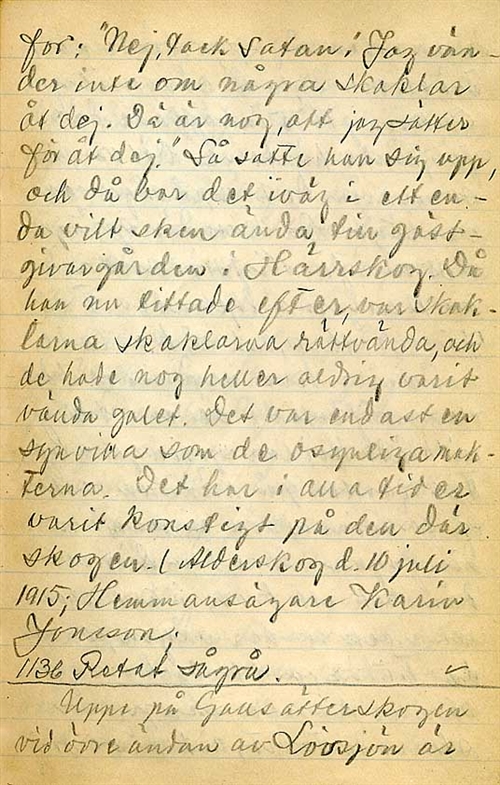 for: "Nej, tack Satan! Jag vän-
der inte om några skaklar
åt dej. Då är nog, att jag sätter
för åt dej." Så satte han sig upp,
och då bar det iväg i ett en-
da vilt sken ända till gäst-
givargården i Härrskog. Då
han nu tittade efter, var skak-
larna skaklarna rättvända, och
de hade nog heller aldrig varit
vända galet. Det var endast en
synvilla som de osynliga mak-
terna. Det har i alla tider
varit konstigt på den där
skogen. (Alderskog d. 10 juli
1915; Hemmansägare Karin
Jonsson;
1136 Retat sågrå.
Uppe på Gaussätterskogen
vid övre ändan av Lövsjön är